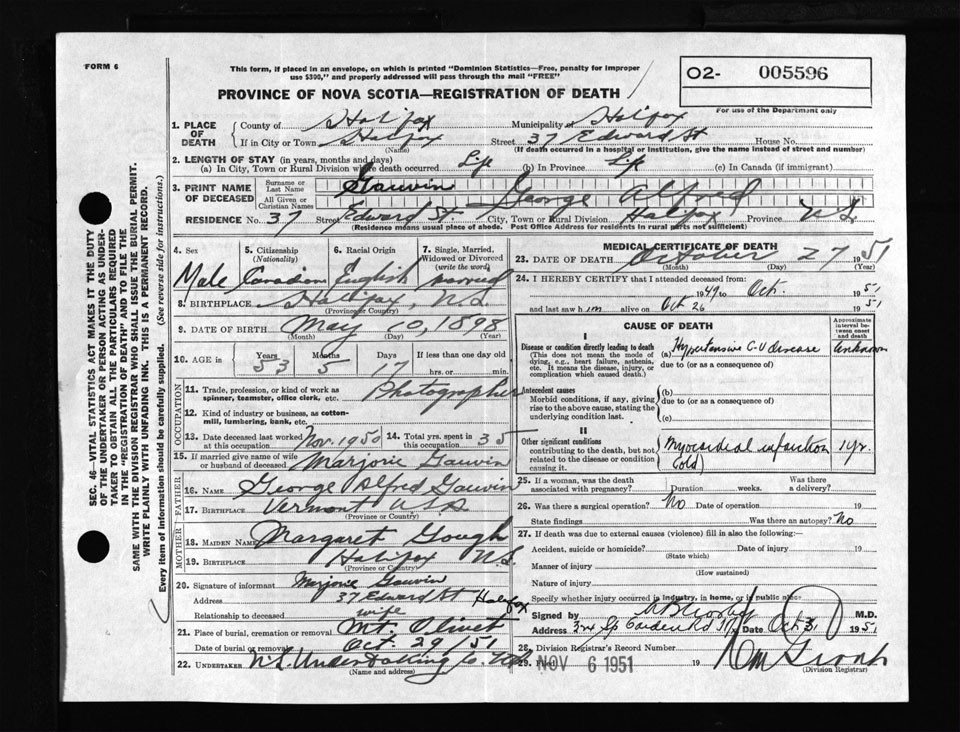 FORM 6
This form, if placed in an envelope, on which is printed "Dominion Statistics—Free, penalty for improper
use $300," and properly addressed will pass through the mail "FREE"
PROVINCE OF NOVA SCOTIA—REGISTRATION OF DEATH
O2- 005596
For use of the Department only
1. PLACE OF DEATH
County of Halifax Municipality of Halifax
If in City or Town Halifax Street 37 Edward St House No.
(Name) (If death occurred in a hospital or institution, give the name instead of street and number)
2. LENGTH OF STAY (in years, months and days)
(a) In City, Town or Rural Division where death occurred Life (b) In Province Life (c) In Canada (if immigrant)
3. PRINT NAME OF DECEASED
Surname or Last Name Gauvin
All Given or Christian Names George Alfred
RESIDENCE No. 37 Street Edward St. City, Town or Rural Division Halifax Province N.S.
(Residence means usual place of abode. Post Office Address for residents in rural parts not sufficient)
4. Sex Male
5. Citizenship (Nationality) Canadian
6. Racial Origin English
7. Single, Married, Widowed or Divorced (write the word) married
8. BIRTHPLACE Halifax, N.S.
(Province or Country)
9. DATE OF BIRTH May 10, 1898
(Month) (Day) (Year)
10. AGE in Years 53 Months 5 Days 17 If less than one day old hrs. or min.
OCCUPATION
11. Trade, profession, or kind of work as spinner, teamster, office clerk, etc. Photographer
12. Kind of industry or business, as cotton-mill, lumbering, bank, etc.
13. Date deceased last worked at this occupation Nov. 1950 14. Total yrs. spent in this occupation 35
15. If married give name of wife or husband of deceased Marjorie Gauvin
FATHER
16. NAME George Alfred Gauvin
17. BIRTHPLACE Vermont USA
(Province or Country)
MOTHER
18. MAIDEN NAME Margaret Gough
19. BIRTHPLACE Halifax N.S.
(Province or Country)
20. Signature of informant Marjorie Gauvin
Address 37 Edward St Halifax
Relationship to deceased wife
21. Place of burial, cremation or removal Mt Olivet
Date of burial or removal Oct. 29/51
22. UNDERTAKER N.S. Undertaking Co.
(Name and address)
MEDICAL CERTIFICATE OF DEATH
23. DATE OF DEATH October 27 1951
(Month) (Day) (Year)
24. I HEREBY CERTIFY that I attended deceased from
1949 to Oct. 1951
and last saw him alive on Oct 26 1951
CAUSE OF DEATH
Approximate interval between onset and death
I
Disease or condition directly leading to death
(This does not mean the mode of dying, e.g., heart failure, asthenia, etc. It means the disease, injury or complication which caused death.)
(a) Hypertensive C-V disease unknown
due to (or as a consequence of)
Antecedent causes
Morbid conditions, if any, giving rise to the above cause, stating the underlying condition last.
(b)
due to (or as a consequence of)
(c)
II
Other significant conditions contributing to the death, but not related to the disease or condition causing it.
Myocardial infarction 1 yr.
(old)
25. If a woman, was the death associated with pregnancy? Duration weeks. Was there a delivery?
26. Was there a surgical operation? No Date of operation 19
State findings Was there an autopsy? No
27. If death was due to external causes (violence) fill in also the following:—
Accident, suicide or homicide? Date of injury 19
(State which)
Manner of injury
(How sustained)
Nature of injury
Specify whether injury occurred in industry, in home, or in public place
Signed by M.D.
Address Date Oct 31 1951
28. Division Registrar's Record Number
29. Filed NOV 6 1951 19
(Division Registrar)
SEC. 46—VITAL STATISTICS ACT MAKES IT THE DUTY
OF THE UNDERTAKER OR PERSON ACTING AS UNDER-
TAKER TO OBTAIN ALL THE PARTICULARS REQUIRED
IN THE "REGISTRATION OF DEATH" AND TO FILE THE
SAME WITH THE DIVISION REGISTRAR WHO SHALL ISSUE THE BURIAL PERMIT.
WRITE PLAINLY WITH UNFADING INK. THIS IS A PERMANENT RECORD.
Every item of information should be carefully supplied. (See reverse side for instructions.)